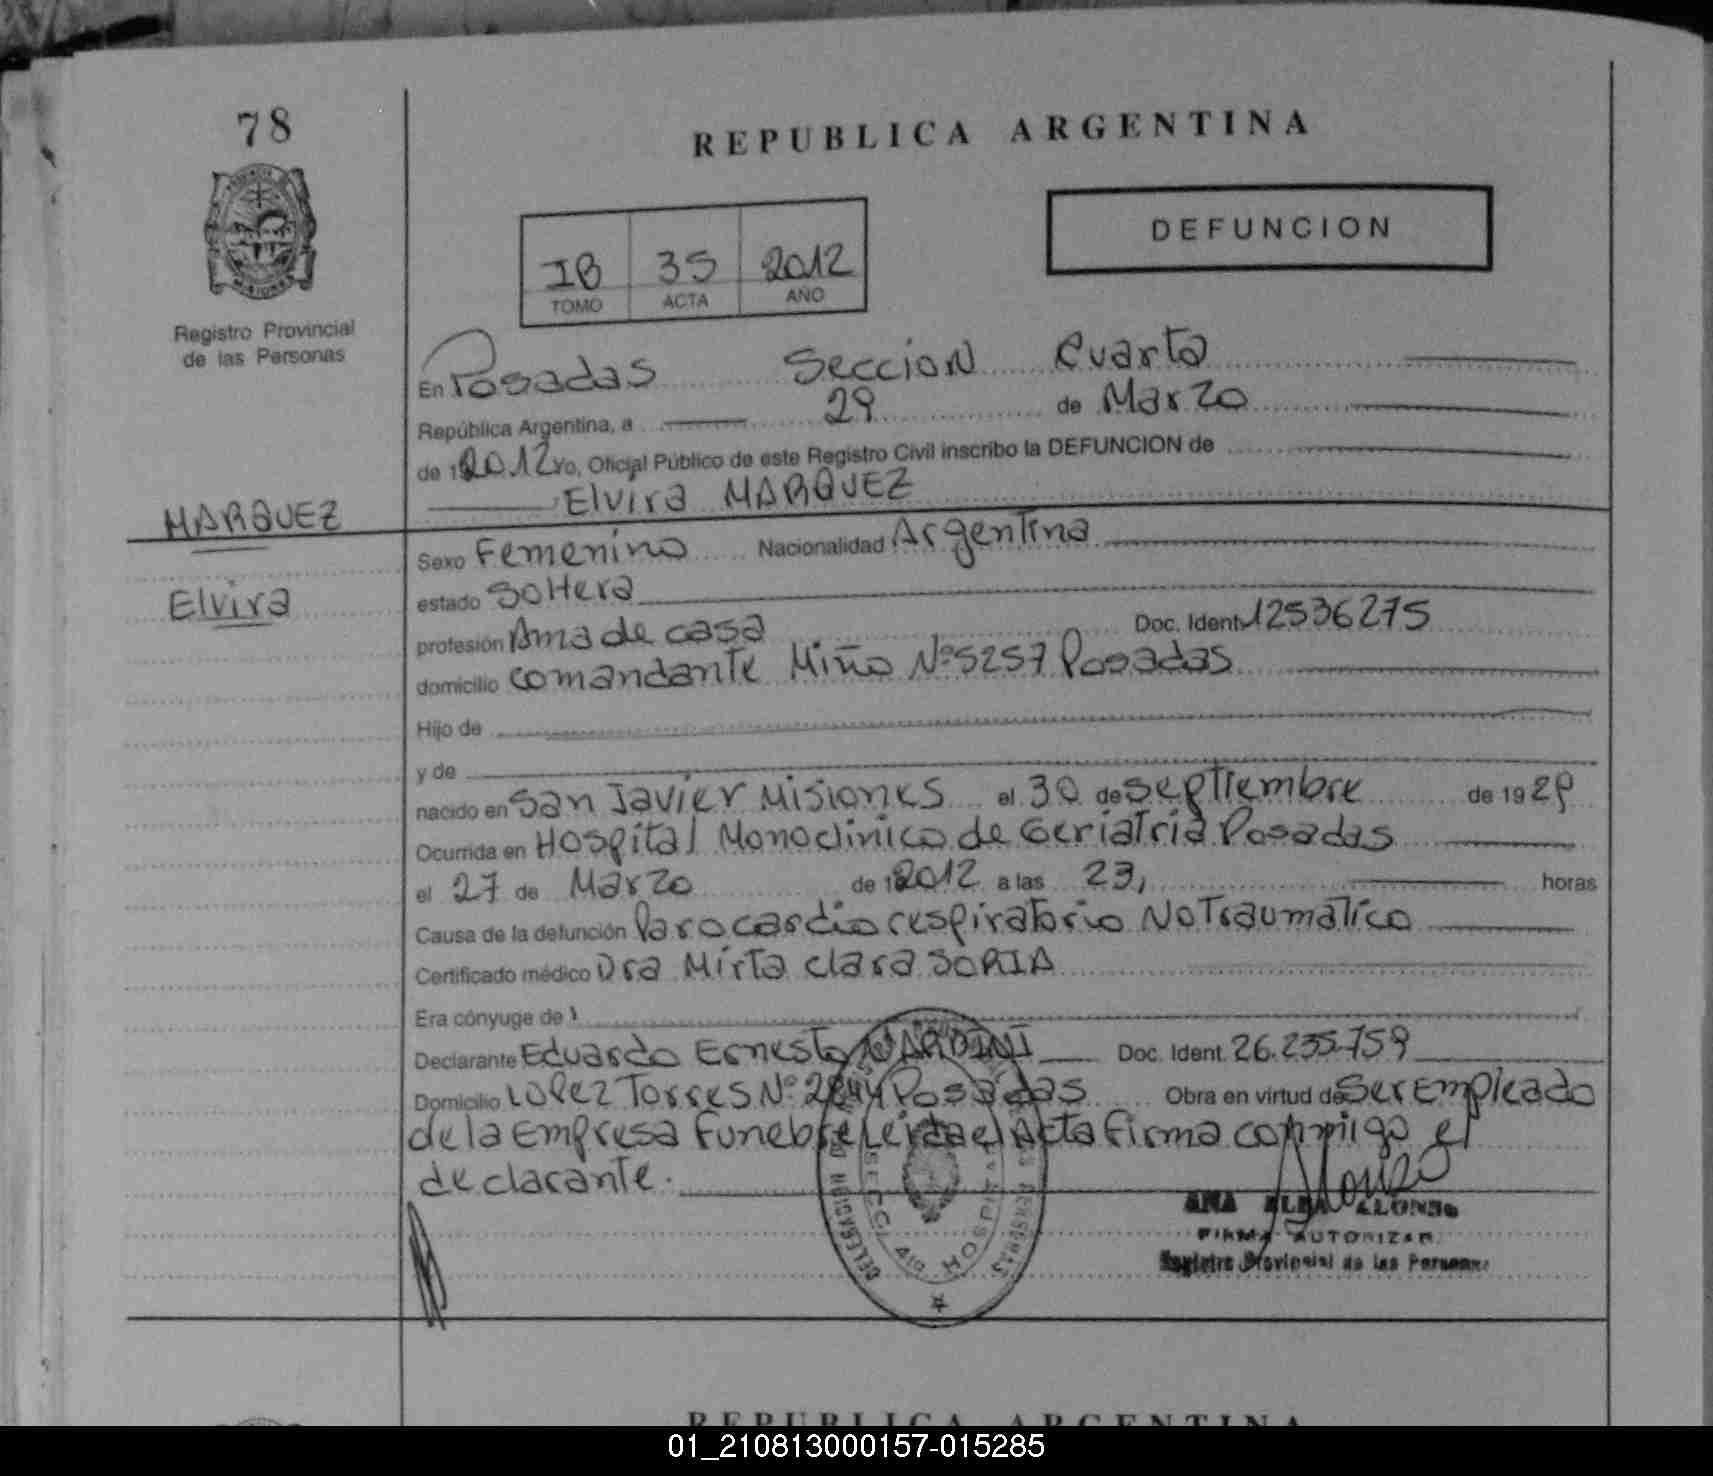 78
REPUBLICA ARGENTINA
DEFUNCION
IB 35 2012
TOMO ACTA AÑO
Registro Provincial
de las Personas
En Posadas Seccion Cuarta
República Argentina, a 29 de Marzo
de 1 2012 yo, Oficial Público de este Registro Civil inscribo la DEFUNCION de
Elvira MARQUEZ
MARQUEZ
Elvira
Sexo Femenino Nacionalidad Argentina
estado Soltera
profesión Ama de casa Doc. Ident. 12536275
domicilio Comandante Miño Nº 5257 Posadas
Hijo de
y de
nacido en San Javier Misiones el 30 de Septiembre de 19 29
Ocurrida en Hospital Monoclinico de Geriatria Posadas
el 27 de Marzo de 1 2012 a las 23, horas
Causa de la defunción Paro cardio respiratorio No Traumatico
Certificado médico Dra Mirta Clara SORIA
Era cónyuge de
Declarante Eduardo Ernesto NARDINI Doc. Ident. 26.235.759
Domicilio Lopez Torres Nº 2844 Posadas Obra en virtud de Ser Empleado
de la Empresa Funebre Leida el Acta firma conmigo el
declarante.
Alonso
ANA ELBA ALONSO
FIRMA AUTORIZADA
Registro Provincial de las Personas
DELEGACION
HOSPITAL
PERSONAS
REPUBLICA ARGENTINA
01_210813000157-015285